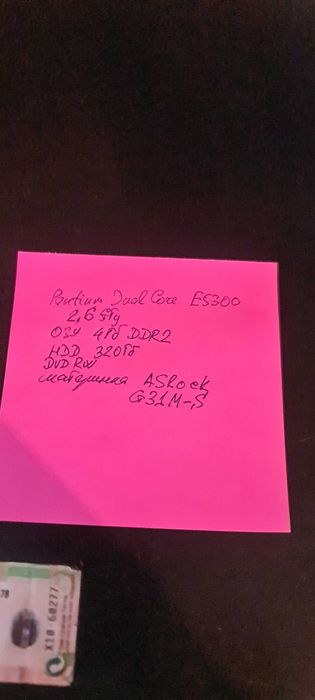 Pentium Dual Core E5300
2,6 ГГц
ОЗУ 4Гб DDR2
HDD 320Гб
DVD RW
материнка ASRock
G31M-S
78
X18-60277